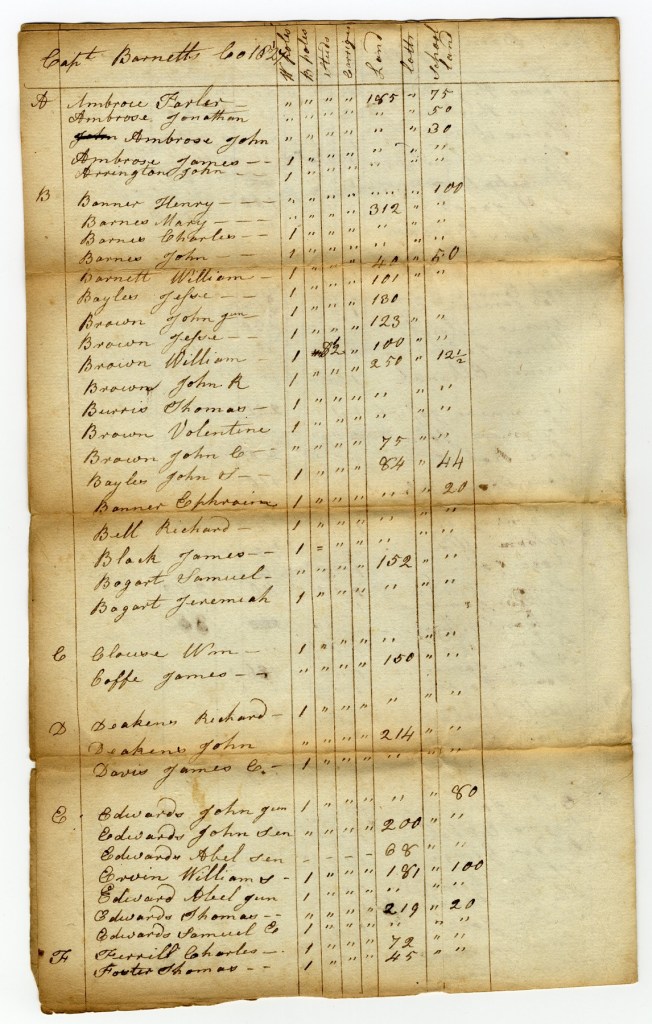 Capt Barnetts Co 1827 W poles B poles Studs Carriges Land Lotts School Land
A Ambrose Farler — " " " " 185 " 75
Ambrose Jonathan " " " " " " 50
Ambrose John " " " " " " 30
Ambrose James - - 1 " " " " " "
Arrington John - 1 " " " " " "
B Banner Henry - - - " " " " " " 100
Barnes Mary - - - " " " " 312 " "
Barnes Charles - 1 " " " " " "
Barnes John - 1 " " " " " "
Barnett William - 1 " " " 40 " 50
Bayles Jesse - - 1 " " " 101 " "
Brown John jun 1 " " " 130
Brown Jesse - - 1 " " " 123 " "
Brown William - 1 " 100 " "
Brown John R 1 " " " 250 " 12½
Burris Thomas - 1 " " " " " "
Brown Volentine 1 " " " " " "
Brown John C - " " " " 75 " "
Bayles John S - 1 " " " 84 " 44
Banner Ephraim 1 " " " " " 20
Bell Richard - 1 " " " " " "
Black James - - 1 = " " " " "
Bogart Samuel - " " " " 152 " "
Bogart Jeremiah 1 " " " " " "
C Clouse Wm - 1 " " " " " "
Coffe James - - " " " " 150 " "
D Deakens Richard - 1 " " " " " "
Deakens John " " " " 214 " "
Davis James C. - 1 " " " " " "
E Edwards John jun 1 " " " " " 80
Edwards John Sen " " " " 200 " "
Edwards Abel Sen - - - - 68 " "
Ervin Williams - 1 " " " 181 " 100
Edward Abel jun 1 " " " " " "
Edwards Thomas - - " " " " 219 " 20
Edwards Samuel E 1 " " " " " "
F Ferrill Charles - 1 " " " 72 " "
Foster Thomas - - 1 " " " 45 " "